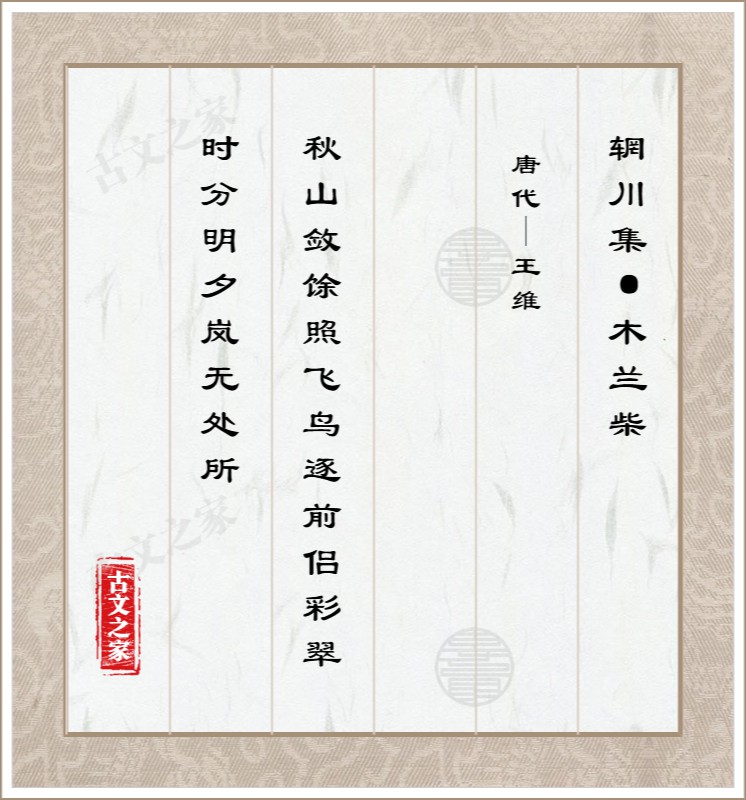 辋川集●木兰柴
唐代—王维
秋山敛馀照飞鸟逐前侣彩翠
时分明夕岚无处所
古文之家
古文之家
古文之家